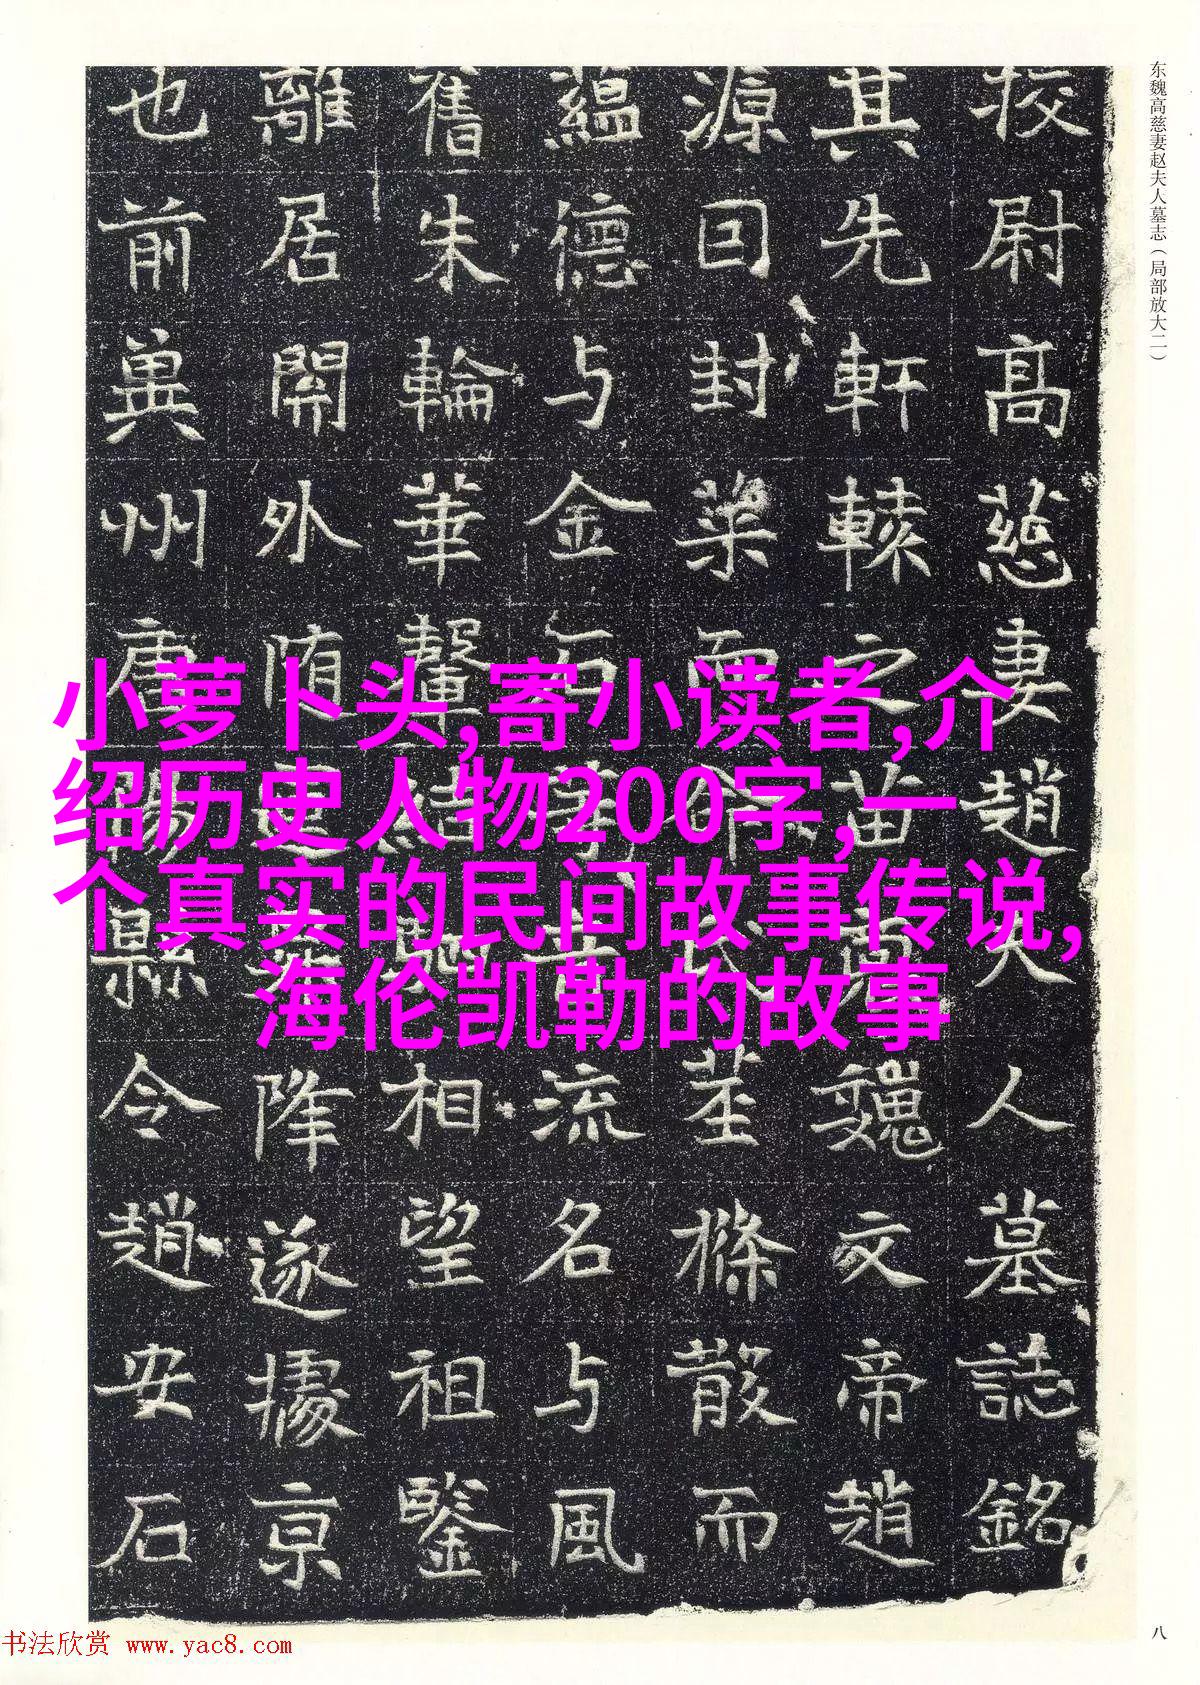 东魏高慈妻赵夫人墓志（局部放大二）
挍尉高慈妻趙夫人墓誌銘
其先軒轅之苗裔魏文帝趙
源囙封而氏莖條散而
蘊德与金石音流名与風
舊朱輪華結駟相望祖鑒
離居開外随降遂據京
也前兾州唐陽縣令趙安石
小萝卜头,寄小读者,介
绍历史人物200字,一
个真实的民间故事传说,
海伦凯勒的故事
八
书法欣赏 www.yac8.com